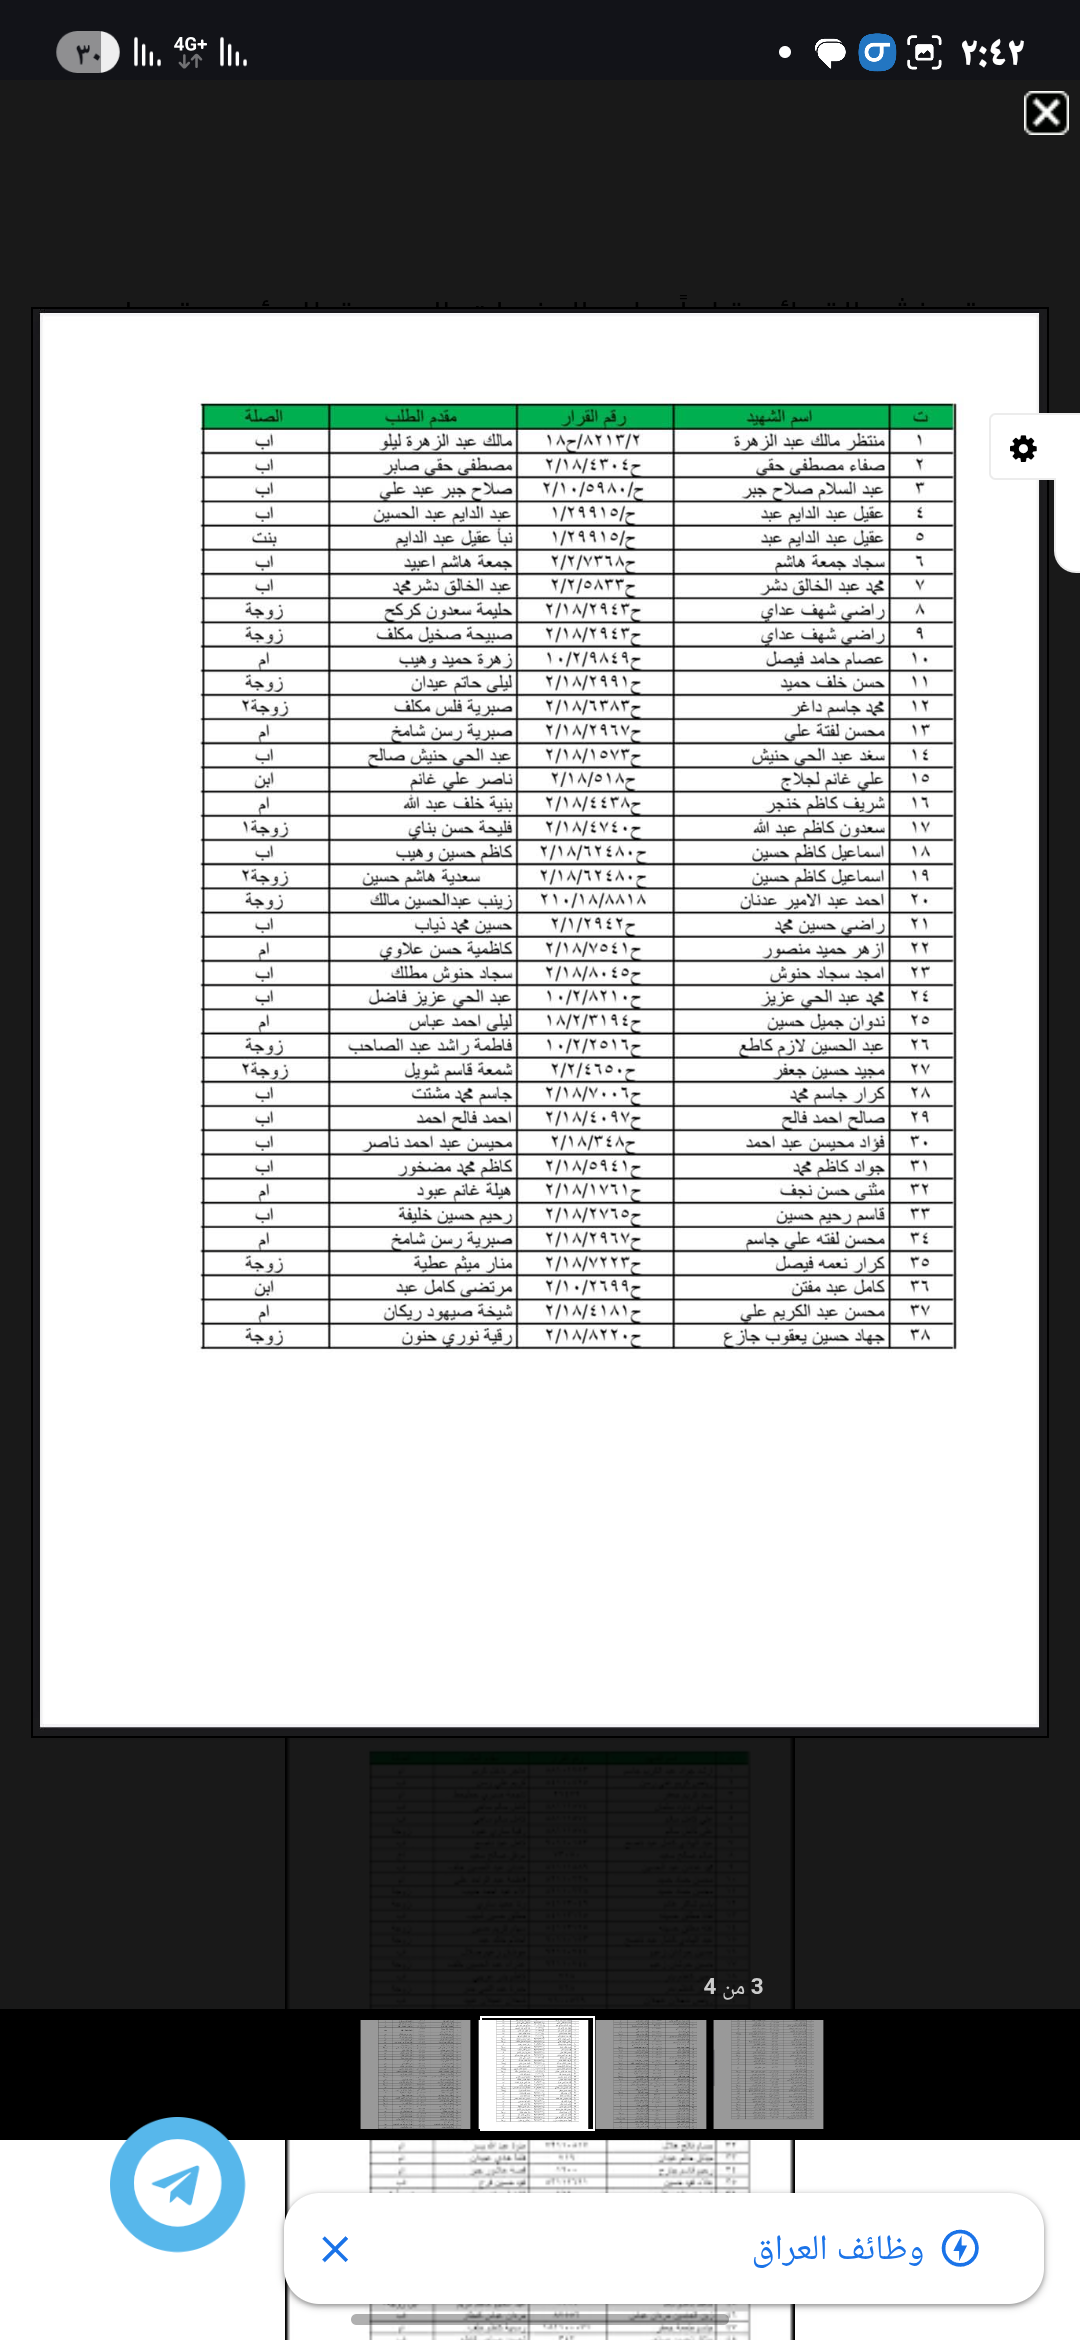 ٢:٤٢
4G+
٣٠
ت اسم الشهيد رقم القرار مقدم الطلب الصلة
١ منتظر مالك عبد الزهرة ٨٢١٣/٢/ح١٨ مالك عبد الزهرة ليلو اب
٢ صفاء مصطفى حقي ح٢/١٨/٤٣٠٤ مصطفى حقي صابر اب
٣ عبد السلام صلاح جبر ح/٢/١٠/٥٩٨٠ صلاح جبر عبد علي اب
٤ عقيل عبد الدايم عبد ح/١/٢٩٩١٥ عبد الدايم عبد الحسين اب
٥ عقيل عبد الدايم عبد ح/١/٢٩٩١٥ نبأ عقيل عبد الدايم بنت
٦ سجاد جمعة هاشم ح٢/٢/٧٣٦٨ جمعة هاشم اعبيد اب
٧ محمد عبد الخالق دشر ح٢/٢/٥٨٣٣ عبد الخالق دشر محمد اب
٨ راضي شهف عداي ح٢/١٨/٢٩٤٣ حليمة سعدون كركح زوجة
٩ راضي شهف عداي ح٢/١٨/٢٩٤٣ صبيحة صخيل مكلف زوجة
١٠ عصام حامد فيصل ح١٠/٢/٩٨٤٩ زهرة حميد وهيب ام
١١ حسن خلف حميد ح٢/١٨/٢٩٩١ ليلى حاتم عيدان زوجة
١٢ محمد جاسم داغر ح٢/١٨/٦٣٨٣ صبرية فلس مكلف زوجة٢
١٣ محسن لفتة علي ح٢/١٨/٢٩٦٧ صبرية رسن شامخ ام
١٤ سعد عبد الحي حنيش ح٢/١٨/١٥٧٣ عبد الحي حنيش صالح اب
١٥ علي غانم لجلاج ح٢/١٨/٥١٨ ناصر علي غانم ابن
١٦ شريف كاظم خنجر ح٢/١٨/٤٤٣٨ بنية خلف عبد الله ام
١٧ سعدون كاظم عبد الله ح٢/١٨/٤٧٤٠ فليحة حسن بناي زوجة١
١٨ اسماعيل كاظم حسين ح٢/١٨/٦٢٤٨٠ كاظم حسين وهيب اب
١٩ اسماعيل كاظم حسين ح٢/١٨/٦٢٤٨٠ سعدية هاشم حسين زوجة٢
٢٠ احمد عبد الامير عدنان ٢١٠/١٨/٨٨١٨ زينب عبدالحسين مالك زوجة
٢١ راضي حسين محمد ح٢/١/٢٩٤٢ حسين محمد ذياب اب
٢٢ ازهر حميد منصور ح٢/١٨/٧٥٤١ كاظمية حسن علاوي ام
٢٣ امجد سجاد حنوش ح٢/١٨/٨٠٤٥ سجاد حنوش مطلك اب
٢٤ محمد عبد الحي عزيز ح١٠/٢/٨٢١٠ عبد الحي عزيز فاضل اب
٢٥ ندوان جميل حسين ح١٨/٢/٣١٩٤ ليلى احمد عباس ام
٢٦ عبد الحسين لازم كاطع ح١٠/٢/٢٥١٦ فاطمة راشد عبد الصاحب زوجة
٢٧ مجيد حسين جعفر ح٢/٢/٤٦٥٠ شمعة قاسم شويل زوجة٢
٢٨ كرار جاسم محمد ح٢/١٨/٧٠٠٦ جاسم محمد مشتت اب
٢٩ صالح احمد فالح ح٢/١٨/٤٠٩٧ احمد فالح احمد اب
٣٠ فؤاد محيسن عبد احمد ح٢/١٨/٣٤٨ محيسن عبد احمد ناصر اب
٣١ جواد كاظم محمد ح٢/١٨/٥٩٤١ كاظم محمد مضخور اب
٣٢ مثنى حسن نجف ح٢/١٨/١٧٦١ هيلة غانم عبود ام
٣٣ قاسم رحيم حسين ح٢/١٨/٢٧٦٥ رحيم حسين خليفة اب
٣٤ محسن لفته علي جاسم ح٢/١٨/٢٩٦٧ صبرية رسن شامخ ام
٣٥ كرار نعمه فيصل ح٢/١٨/٧٢٢٣ منار ميثم عطية زوجة
٣٦ كامل عبد مفتن ح٢/١٠/٢٦٩٩ مرتضى كامل عبد ابن
٣٧ محسن عبد الكريم علي ح٢/١٨/٤١٨١ شيخة صيهود ريكان ام
٣٨ جهاد حسين يعقوب جازع ح٢/١٨/٨٢٢٠ رقية نوري حنون زوجة
3 من 4
وظائف العراق